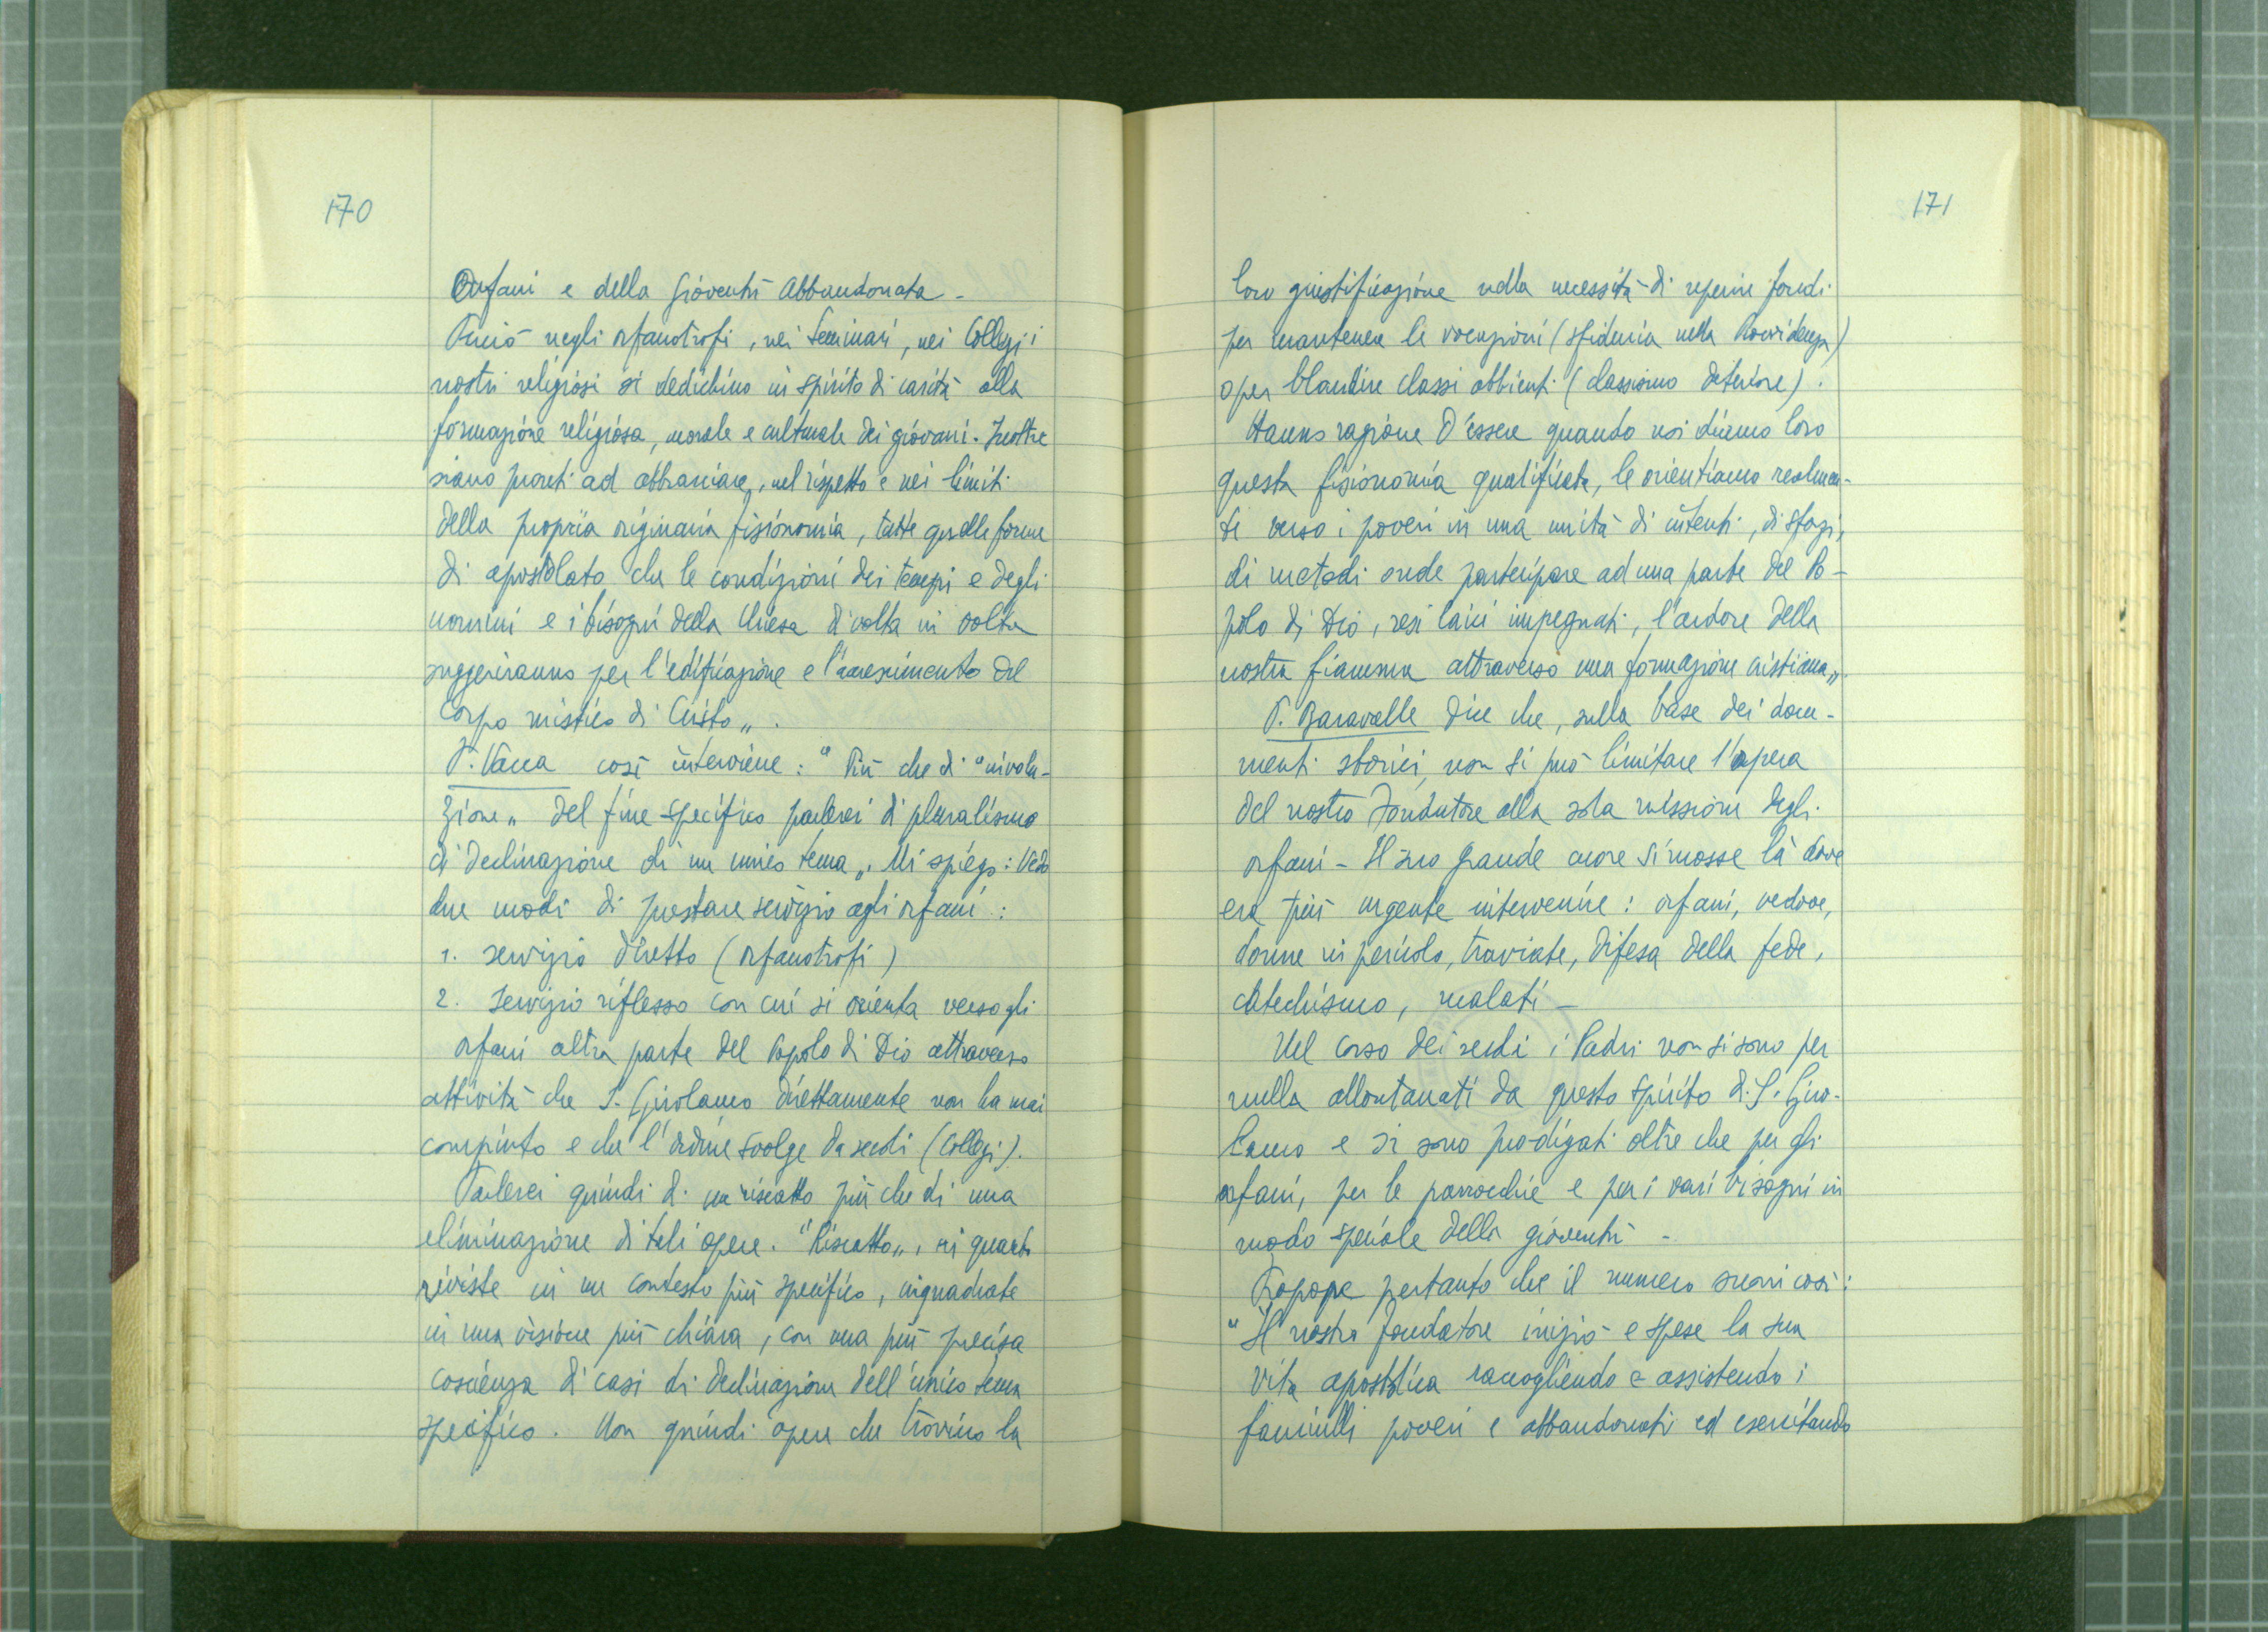 170
Orfani e della Gioventù Abbandonata -
Perciò negli orfanotrofi, nei Seminari, nei Collegi i
nostri religiosi si dedichino in spirito di carità alla
formazione religiosa, morale e culturale dei giovani. Inoltre
siano pronti ad abbracciare, nel rispetto e nei limiti
della propria originaria fisionomia, tutte quelle forme
di apostolato che le condizioni dei tempi e degli
uomini e i bisogni della Chiesa di volta in volta
suggeriranno per l'edificazione e l'accrescimento del
Corpo mistico di Cristo„.
P. Vacca così interviene: "Più che di "involu-
zione„ del fine specifico parlerei di pluralismo
di declinazione di un unico tema„. Mi spiego: Vedo
due modi di prestare servizio agli orfani:
1. servizio diretto (orfanotrofi)
2. Servizio riflesso con cui si orienta verso gli
orfani altra parte del Popolo di Dio attraverso
attività che S. Girolamo direttamente non ha mai
compiuto e che l'ordine svolge da secoli (Collegi).
Parlerei quindi di un riscatto più che di una
eliminazione di tali opere. "Riscatto„, in quanto
riviste in un contesto più specifico, inquadrate
in una visione più chiara, con una più precisa
coscienza di casi di declinazione dell'unico tema
specifico. Non quindi opere che trovino la
171
loro giustificazione nella necessità di reperire fondi
per mantenere le vocazioni (sfiducia nella Provvidenza)
o per blandire classi abbienti (classismo deteriore).
Hanno ragione d'essere quando noi diamo loro
questa fisionomia qualificata, le orientiamo realmen-
te verso i poveri in una unità di intenti, di sforzi,
di metodi onde partecipare ad una parte del Po-
polo di Dio, resi laici impegnati, l'ardore della
nostra fiamma attraverso una formazione cristiana„.
P. Baravalle dice che, sulla base dei docu-
menti storici, non si può limitare l'opera
del nostro Fondatore alla sola missione degli
orfani - Il suo grande cuore si mosse là dove
era più urgente intervenire: orfani, vedove,
donne in pericolo, traviate, difesa della fede,
catechismo, malati -
Nel corso dei secoli i Padri non si sono per
nulla allontanati da questo spirito di S. Giro-
lamo e si sono prodigati oltre che per gli
orfani, per le parrocchie e per i vari bisogni in
modo speciale della gioventù -
Propone pertanto che il numero suoni così:
"Il nostro fondatore iniziò e spese la sua
vita apostolica raccogliendo e assistendo i
fanciulli poveri e abbandonati ed esercitando